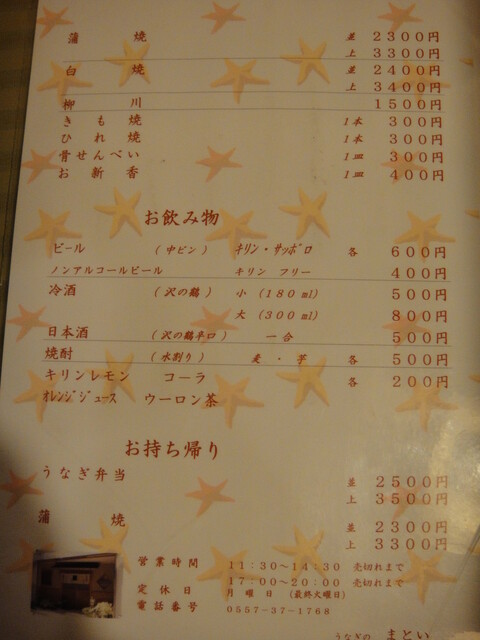 蒲焼 並 2300円
上 3300円
白焼 並 2400円
上 3400円
柳川 1500円
きも焼 1本 300円
ひれ焼 1本 300円
骨せんべい 1皿 300円
お新香 1皿 400円
お飲み物
ビール (中ビン) キリン・サッポロ 各 600円
ノンアルコールビール キリン フリー 400円
冷酒 (沢の鶴) 小 (180ml) 500円
大 (300ml) 800円
日本酒 (沢の鶴辛口) 一合 500円
焼酎 (水割り) 麦・芋 各 500円
キリンレモン コーラ 各 200円
オレンジジュース ウーロン茶
お持ち帰り
うなぎ弁当 並 2500円
上 3500円
蒲焼 並 2300円
上 3300円
営業時間 11:30～14:30 売切れまで
17:00～20:00 売切れまで
定休日 月曜日 (最終火曜日)
電話番号 0557-37-1768
うなぎの まとい